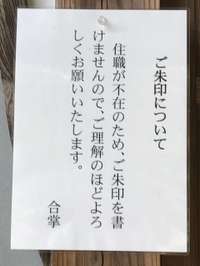 ご朱印について
住職が不在のため、ご朱印を書
けませんので、ご理解のほどよろ
しくお願いいたします。
合掌